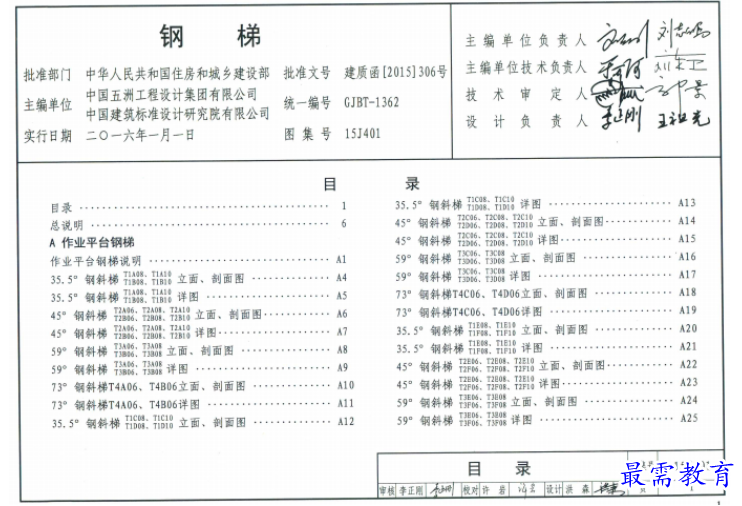 钢 梯
批准部门 中华人民共和国住房和城乡建设部 批准文号 建质函[2015]306号
主编单位 中国五洲工程设计集团有限公司 中国建筑标准设计研究院有限公司 统一编号 GJBT-1362
实行日期 二〇一六年一月一日 图集号 15J401
主编单位负责人
主编单位技术负责人
技术审定人
设计负责人 李正刚 王祖光
目 录
目录 1
总说明 6
A 作业平台钢梯
作业平台钢梯说明 A1
35.5° 钢斜梯 T1A08、T1A10 T1B08、T1B10 立面、剖面图 A4
35.5° 钢斜梯 T1A08、T1A10 T1B08、T1B10 详图 A5
45° 钢斜梯 T2A06、T2A08、T2A10 T2B06、T2B08、T2B10 立面、剖面图 A6
45° 钢斜梯 T2A06、T2A08、T2A10 T2B06、T2B08、T2B10 详图 A7
59° 钢斜梯 T3A06、T3A08 T3B06、T3B08 立面、剖面图 A8
59° 钢斜梯 T3A06、T3A08 T3B06、T3B08 详图 A9
73° 钢斜梯T4A06、T4B06立面、剖面图 A10
73° 钢斜梯T4A06、T4B06详图 A11
35.5° 钢斜梯 T1C08、T1C10 T1D08、T1D10 立面、剖面图 A12
35.5° 钢斜梯 T1C08、T1C10 T1D08、T1D10 详图 A13
45° 钢斜梯 T2C06、T2C08、T2C10 T2D06、T2D08、T2D10 立面、剖面图 A14
45° 钢斜梯 T2C06、T2C08、T2C10 T2D06、T2D08、T2D10 详图 A15
59° 钢斜梯 T3C06、T3C08 T3D06、T3D08 立面、剖面图 A16
59° 钢斜梯 T3C06、T3C08 T3D06、T3D08 详图 A17
73° 钢斜梯T4C06、T4D06立面、剖面图 A18
73° 钢斜梯T4C06、T4D06详图 A19
35.5° 钢斜梯 T1E08、T1E10 T1F08、T1F10 立面、剖面图 A20
35.5° 钢斜梯 T1E08、T1E10 T1F08、T1F10 详图 A21
45° 钢斜梯 T2E06、T2E08、T2E10 T2F06、T2F08、T2F10 立面、剖面图 A22
45° 钢斜梯 T2E06、T2E08、T2E10 T2F06、T2F08、T2F10 详图 A23
59° 钢斜梯 T3E06、T3E08 T3F06、T3F08 立面、剖面图 A24
59° 钢斜梯 T3E06、T3E08 T3F06、T3F08 详图 A25
目 录
审核 李正刚 校对 许岩 设计 洪森 页 1
最需教育
1